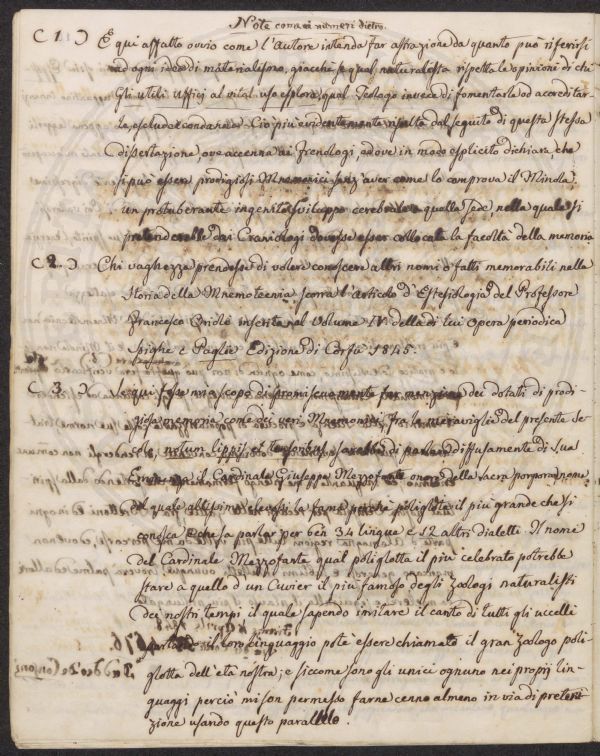 Note con ai numeri dietro.
(1.) È qui affatto ovvio come l'Autore intenda far astrazione da quanto può riferirsi
ad ogni idea di materialismo, giacchè se qual naturalista rispetta le opinioni di chi
Gli utili Uffici al vital uso esplora, qual Teologo invece di fomentarle od accreditar-
le, esclude e condanna. Ciò più evidentemente risulta dal seguito di questa stessa
Dissertazione, ove accenna ai Frenologi, ed ove in modo esplicito dichiara, che
si può essere prodigiosi Mnemonici senz'aver come lo comprova il Minola,
un protuberante ingenito sviluppo cerebrale a quella sede, nella quale si
pretenderebbe dai Craniologi dovesse esser collocata la facoltà della memoria
(2.) Chi vaghezza prendesse di volere conoscere altri nomi o fatti memorabili nella
Storia della Mnemotecnia scorra l'articolo d'Estesiologia del Professore
Francesco Orioli inserito nel Volume IV della di lui Opera periodica
Spighe e Paglie Edizione di Corfù 1845.
(3.) Se qui fosse mio scopo di promiscuamente far menzione dei dotati di prodi-
giosa memoria come dei veri Mnemonici fra le meraviglie del presente se-
colo, notum lippis et tonsoribus sarebbe di parlare diffusamente di Sua
Eminenza il Cardinale Giuseppe Mezzofante onore della sacra porpora, nome
del quale altissimo elevossi la fama perchè poliglotta il più grande che si
conosca e che sa parlar per ben 34 lingue e 12 altri dialetti. Il nome
del Cardinale Mezzofante qual poliglotta il più celebrato potrebbe
stare a quello d'un Cuvier il più famoso degli Zoologi naturalisti
dei nostri tempi il quale sapendo imitare il canto di tutti gli uccelli
il loro linguaggio potè essere chiamato il gran Zoologo poli-
glotta dell'età nostra; e siccome sono gli unici ognuno nei proprj lin-
guaggi perciò mi son permesso farne cenno almeno in via di preteri-
zione usando questo parallelo.